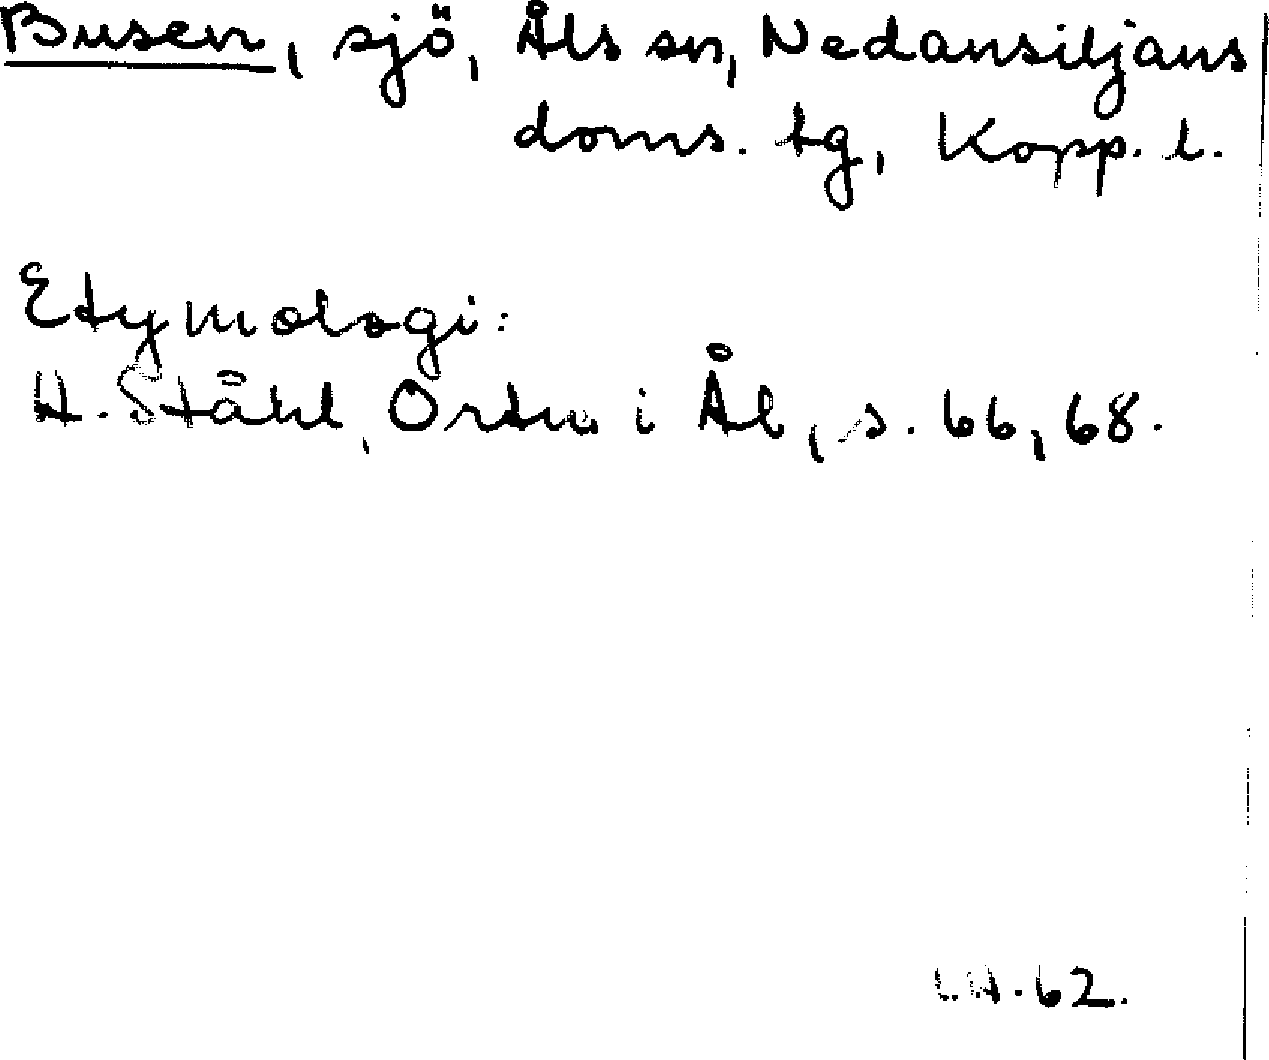 Busen, sjö, Åls sn, Nedansiljans
doms. tg, Kopp. l.
Etymologi:
H. Ståhl, Ortn i Ål, s. 66, 68.
62.